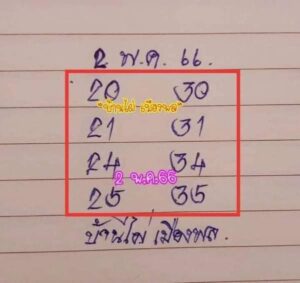 2 พ.ค. 66.
20 30
"บ้านไผ่-เมืองพล"
21 31
24 34
2 พ.ค.66
25 35
บ้านไผ่ เมืองพล.